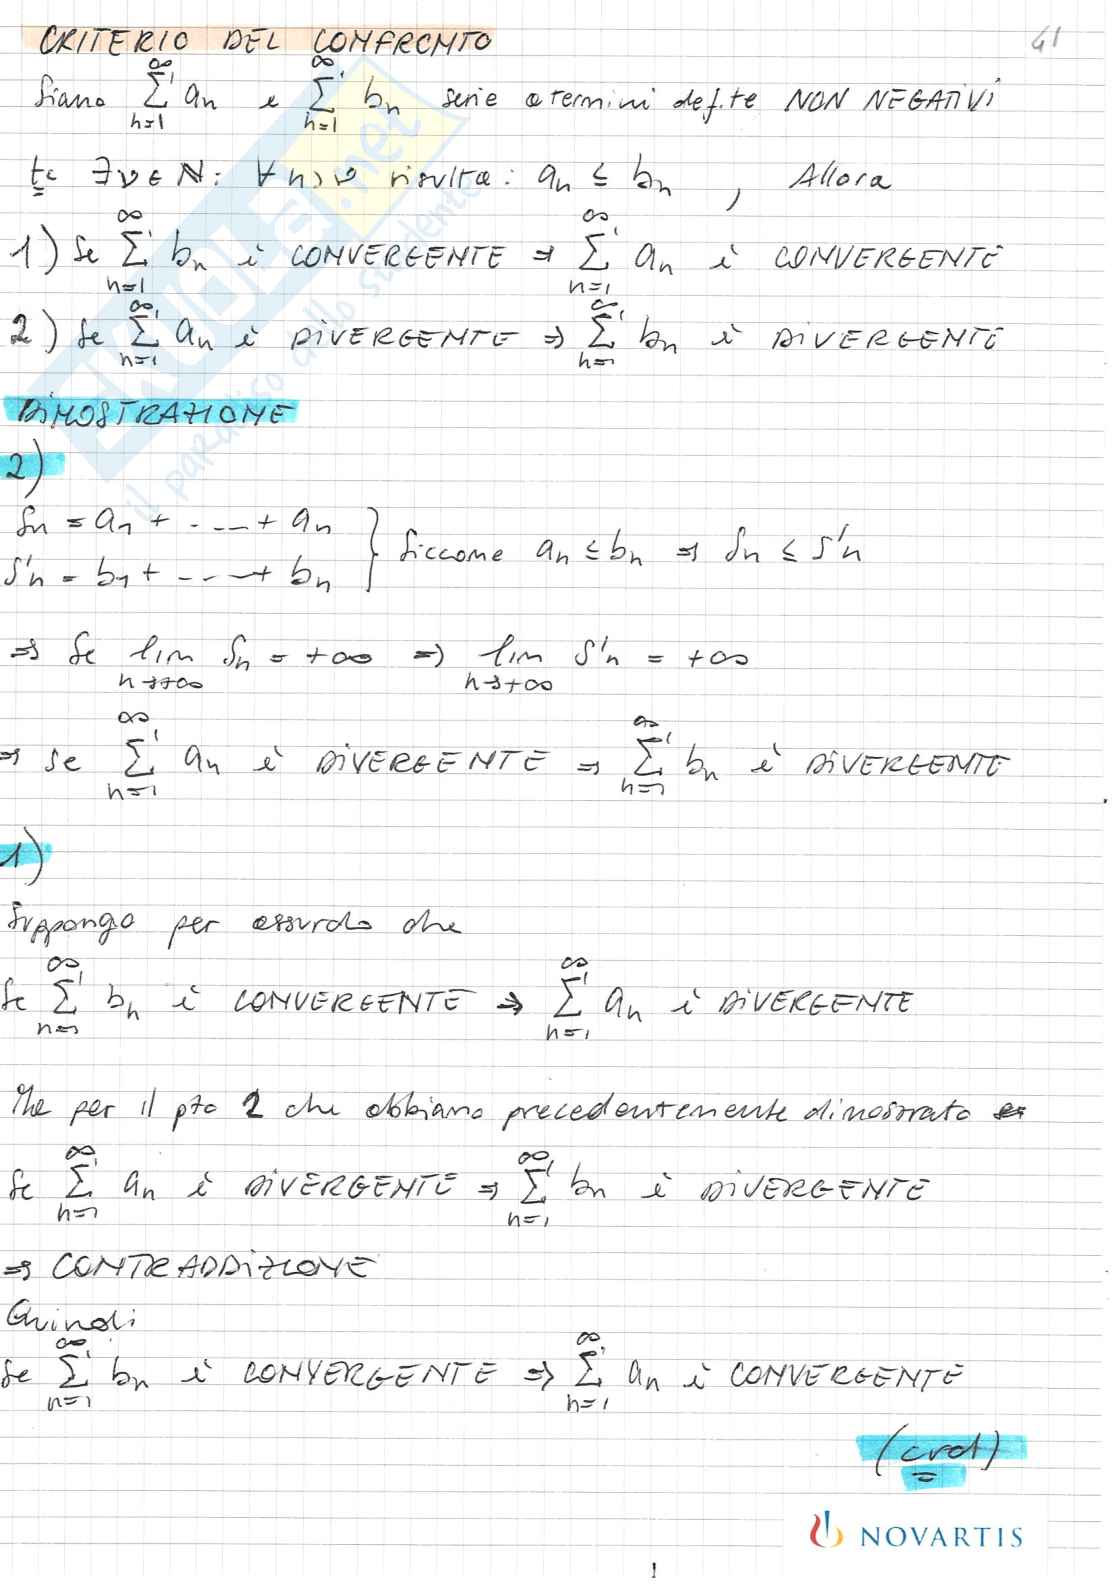 CRITERIO DEL CONFRONTO
41
Siano ∑_{n=1}^{∞} aₙ e ∑_{n=1}^{∞} bₙ serie a termini def.te NON NEGATIVI
tc ∃ν∈N: ∀n>ν risulta: aₙ ≤ bₙ , Allora
1) Se ∑_{n=1}^{∞} bₙ è CONVERGENTE ⇒ ∑_{n=1}^{∞} aₙ è CONVERGENTE
2) Se ∑_{n=1}^{∞} aₙ è DIVERGENTE ⇒ ∑_{n=1}^{∞} bₙ è DIVERGENTE
DIMOSTRAZIONE
2)
Sₙ = a₁ + ..... + aₙ
S'ₙ = b₁ + ..... + bₙ } Siccome aₙ ≤ bₙ ⇒ Sₙ ≤ S'ₙ
⇒ Se lim_{n→+∞} Sₙ = +∞ ⇒ lim_{n→+∞} S'ₙ = +∞
⇒ se ∑_{n=1}^{∞} aₙ è DIVERGENTE ⇒ ∑_{n=1}^{∞} bₙ è DIVERGENTE
1)
Suppongo per assurdo che
Se ∑_{n=1}^{∞} bₙ è CONVERGENTE ⇒ ∑_{n=1}^{∞} aₙ è DIVERGENTE
Ma per il pto 2 che abbiamo precedentemente dimostrato
Se ∑_{n=1}^{∞} aₙ è DIVERGENTE ⇒ ∑_{n=1}^{∞} bₙ è DIVERGENTE
⇒ CONTRADDIZIONE
Quindi
Se ∑_{n=1}^{∞} bₙ è CONVERGENTE ⇒ ∑_{n=1}^{∞} aₙ è CONVERGENTE
(cvd)
NOVARTIS
SKUOLA.net
il paradiso dello studente